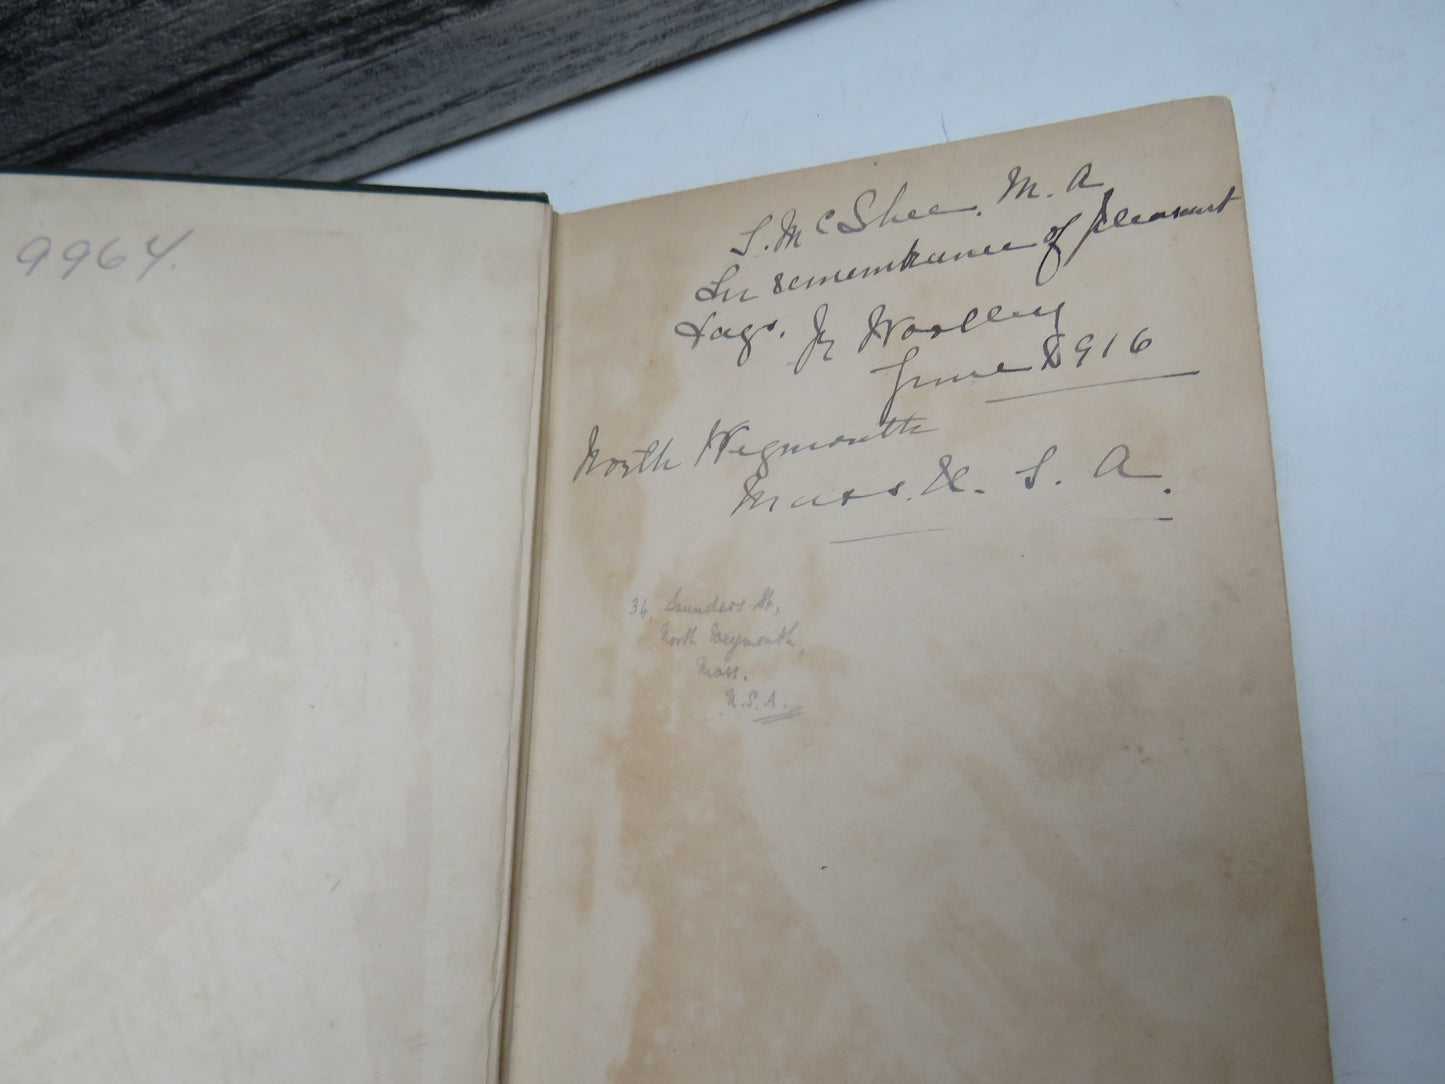 9964.
S. McShee. M. A
In remembrance of pleasant
days. Woolley
June 1916
North Weymouth
Mass. U. S. A.
34, Saunders St,
North Weymouth,
Mass.
U.S.A.